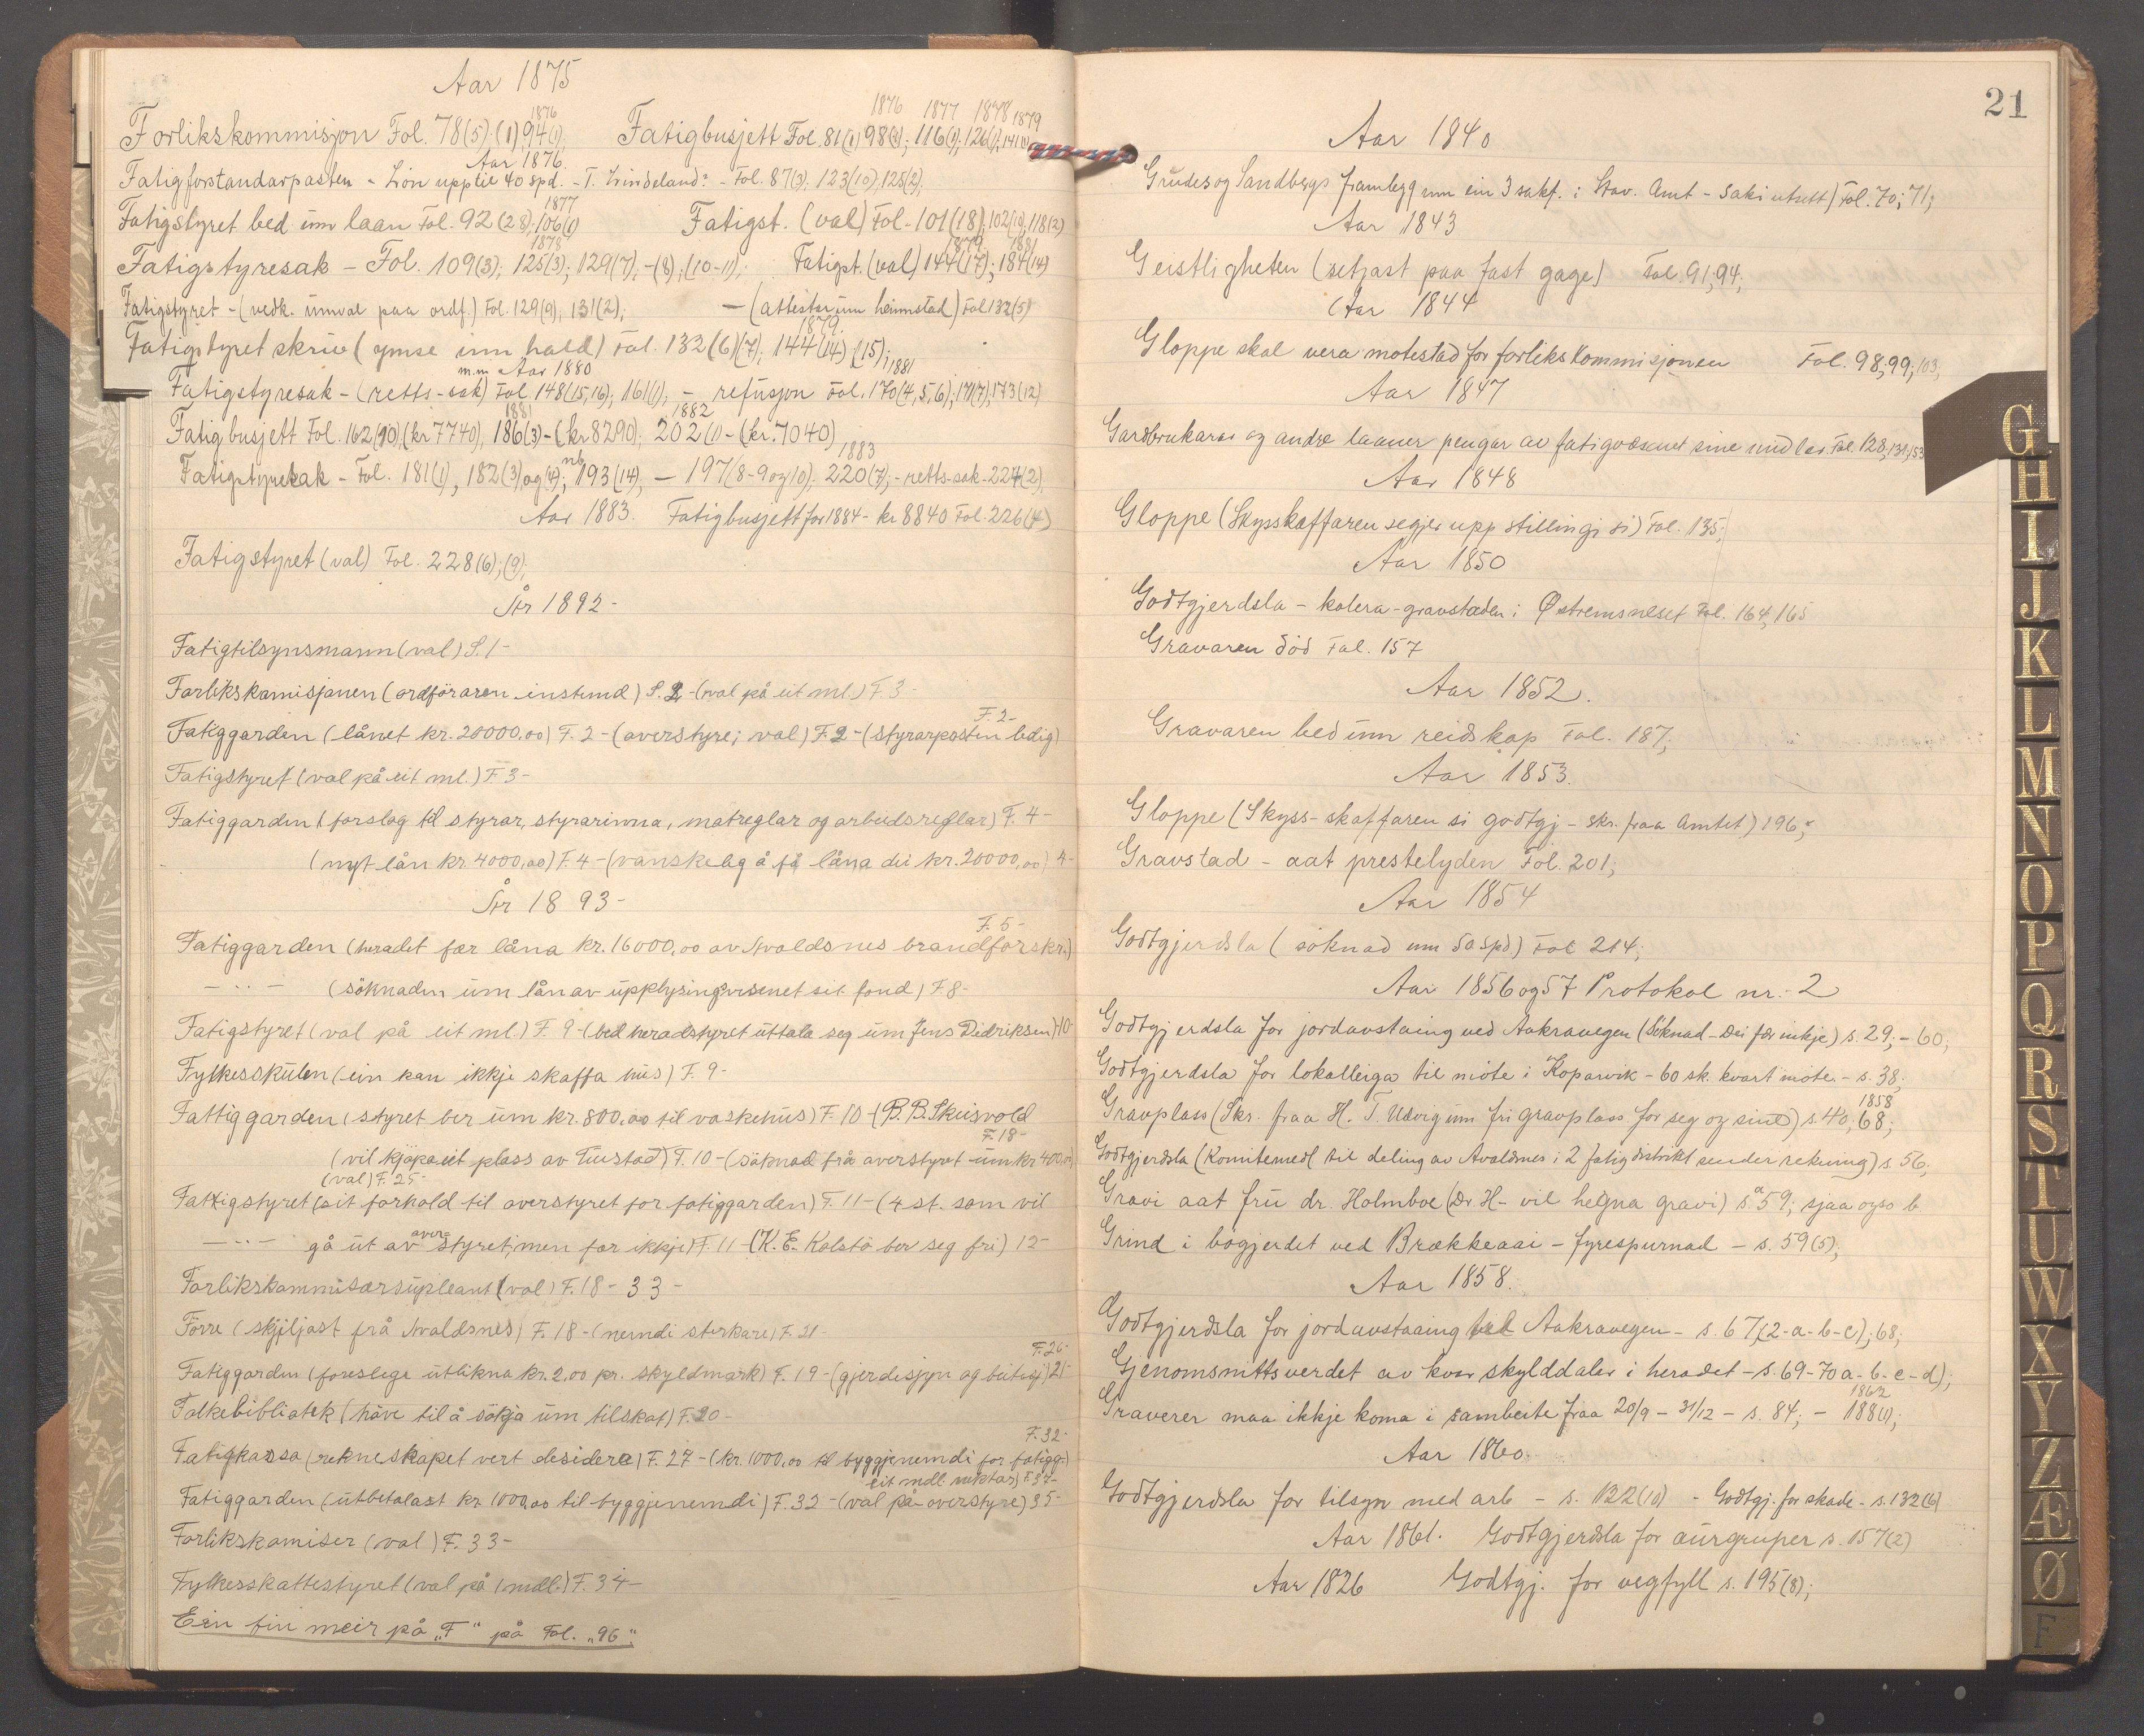 Aar 1875
1876 1876 1877 1878 1879
Forlikskommisjon Fol. 78(5) (1) 94(1), Fatigbusjett Fol. 81(1) 98(8); 116(1); 126(1); 141(1)
Aar 1876
Fatigforstandarposten - Lön upptil 40 spd. - T. - Fol. 87(3), 123(10), 125(2),
1877
Fatigstyret bed um laan Fol. 92(28), 106(1) Fatigst. (val) Fol. 101(18), 102(19), 118(2)
1878 1879 1881
Fatigstyresak - Fol. 109(3); 125(3); 129(7), -(8); (10-11); Fatigst. (val) 144(17); 184(14)
Fatigstyret - (vedk. umval paa ordf.) Fol. 129(9); 131(2); - (attester um heimstad) Fol 132(5)
1879
Fatigstyret skriv (ymse inn hald) Fol. 132(6)(7); 144(14) (15);
m.m Aar 1880 1881
Fatigstyresak - (retts-sak) Fol 148(15,16); 161(1); - refusjon Fol. 170(4,5,6); 171(7), 173(12)
1881 1882
Fatigbusjett Fol. 162(10), (kr 7740), 186(3) - (kr 8290); 202(1) - (kr. 7040)
nb 1883
Fatigstyresak - Fol. 181(1), 182(3) og (4); 193(14), - 197(8-9 og 10); 220(7); - retts-sak - 224(2)
Aar 1883. Fatigbusjett for 1884 - kr 8840 Fol. 226(4)
Fatigstyret (val) Fol. 228(6); (9);
År 1892 -
Fatigtilsynsmann (val) S. 1 -
Forlikskomisjonen (ordföraren instemd) S. 2 - (val på eit ml.) F. 3 -
F. 2 -
Fatiggarden (lånet kr. 20000,00) F. 2 - (overstyre; val) F. 2 - (styrarposten ledig)
Fatigstyret (val på eit ml.) F. 3 -
Fatiggarden (forslag til styrar, styrarinna, matreglar og arbeidsreglar) F. 4 -
(nytt lån kr. 4000,00) F. 4 - (vanskeleg å få låna dei kr. 20000,00) 4 -
År 1893 -
F. 5 -
Fatiggarden (heradet fær låna kr. 16000,00 av Avaldsnes brandforsikr.)
- " - (söknaden um lån av upplysingsvesenet sit fond) F. 8 -
Fatigstyret (val på eit ml.) F. 9 - (bed heradstyret uttala seg um Jens Didriksen) 10 -
Fylkesskulen (ein kan ikkje skaffa hus) F. 9 -
Fattiggarden (styret ber um kr. 800,00 til vaskehus) F. 10 - (B. B. Skeisvold
F. 18 -
(vil kjöpa eit plass av Tuastad) F. 10 - (söknad frå overstyret um kr 400,00)
(val) F. 25 -
Fattigstyret (sit forhold til overstyret for fatiggarden) F. 11 - (4 st. som vil
- " - gå ut av over styret; men fær ikkje) F. 11 - (K. E. Kolstö ber seg fri) 12 -
Forlikskommisærsupleant (val) F. 18 - 33 -
Förre (skjiljast frå Avaldsnes) F. 18 - (nemndi sterkare) F. 21 -
F. 26 -
Fatiggarden (foreslege utlikna kr. 2.00 pr. skyldmark) F. 19 - (gjerdesyn og beitug) 21 -
Folkebibliotek (höve til å søkja um tilskot) F. 20 -
F. 32 -
Fatigkassa (rekneskapet vert desidera) F. 27 - (kr. 1000,00 til byggjenemdi for fatigg.)
eit mdl. vektar) F. 37 -
Fatiggarden (utbetalast kr. 1000,00 til byggjenemdi) F. 32 - (val på overstyre) 35 -
Forlikskomiser (val) F. 33 -
Fylkesskattestyret (val på 1 mdl.) F. 34 -
Ein finn meir på „F" på Fol. „96".
21
Aar 1840
Grudes og Sandbergs framlegg um ein 3 sakf. i Stav. Amt - Saki utsett) Fol. 70; 71;
Aar 1843
Geistligheten (setjast paa fast gage) Fol. 91, 94;
Aar 1844
Gloppe skal vera motestad for forlikskommisjonen Fol. 98, 99, 103,
Aar 1847
Gardbrukarar og andre laaner pengar av fatigvæsenet sine midlar. Fol. 128, 131, 153
Aar 1848
Gloppe (Skysskaffaren segjer upp stillingi si) Fol. 135;
Aar 1850
Godtgjerdsla - kolera-gravstaden i Østremsneset Fol. 164, 165
Gravaren död Fol. 157
Aar 1852.
Gravaren bed um reidskap Fol. 187;
Aar 1853.
Gloppe (Skyss-skaffaren si godtgj - skr. fraa Amtet) 196;
Gravstad - aat prestelyden Fol. 201;
Aar 1854
Godtgjerdsla (söknad um 50 Spd) Fol 214;
Aar 1856 og 57 Protokol nr. 2
Godtgjerdsla for jordavstaing ved Aakravegen (Söknad - Dei fær inkje) s. 29; - 60;
Godtgjerdsla for lokalleiga til möte i Kopervik - 60 sk. kvart möte - s. 38;
1858
Gravplass (Skr. fraa H. T. Udvig um fri gravplass for seg og sine) s. 40, 68;
Godtgjerdsla (Komitemedl. til deling av Avaldsnes i 2 fatigdistrikt sender rekning) s. 56;
Gravi aat fru dr. Holmboe (Dr. H- vil hegna gravi) s. 59; sjaa ogso b
Grind i bögjerdet ved Brækkeaai - fyrespurnad - s. 59(5);
Aar 1858.
Godtgjerdsla for jordavstaaing til Aakravegen - s. 67, (2-a-b-c); 68;
Gjenomsnittsverdet av kvar skylddaler i heradet - s. 69-70 a-b-c-d);
1862
Graverer maa ikkje koma i sambeite fraa 20/9 - 31/12 - s. 84; - 188(1);
Aar 1860.
Godtgjerdsla for tilsyn med arb - s. 122(10) - Godtgj. for skade - s. 132(6)
Aar 1861. Godtgjerdsla for aurgruper s. 157(2)
Aar 1826 Godtgj. for vegfyll s. 195(8);
G
H
I
J
K
L
M
N
O
P
Q
R
S
T
U
W
X
Y
Z
Æ
Ø
F